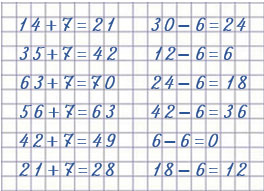 14+7=21 30-6=24
35+7=42 12-6=6
63+7=70 24-6=18
56+7=63 42-6=36
42+7=49 6-6=0
21+7=28 18-6=12